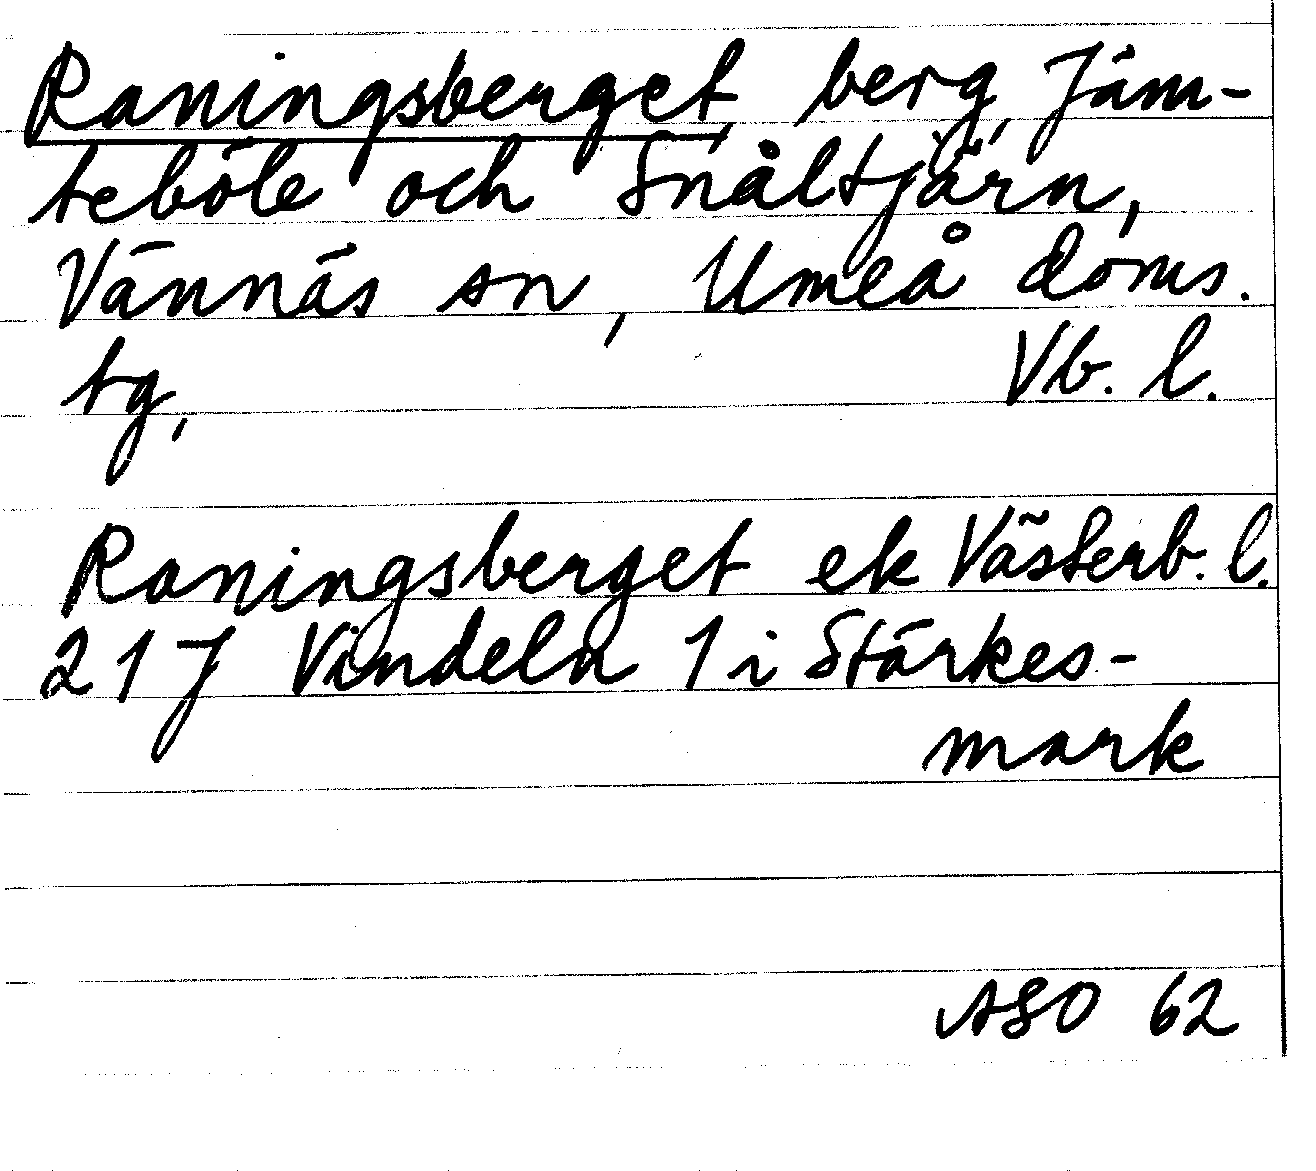 Raningsberget, berg, Jäm-
teböle och Snåltjärn,
Vännäs sn, Umeå doms.
tg, Vb. l.
Raningsberget ek Västerb. l.
217 Vindeln 1 i Stärkes-
mark
ASO 62